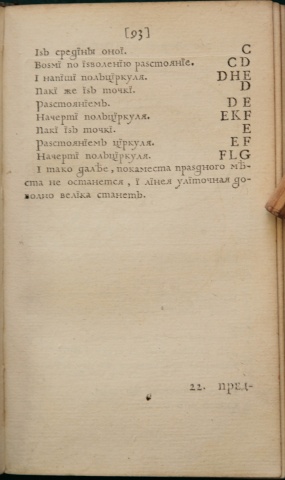 [93]
Їзь средїны оної. C
Возмі по їзволенїю разстоянїе. CD
І напїші полъцїркуля. DHE
Пакї же їзь точкї. D
Разстоянїемъ. DE
Начертї полъцїркуля. EKF
Пакї їзь точкї. E
Разстоянїемъ цїркуля. EF
Начертї полъцїркуля. FLG
І тако далѣе, покамѣста празного мѣ-
ста не останется, ї лїнея улїточная до-
волно велїка станетъ.
22. пред-